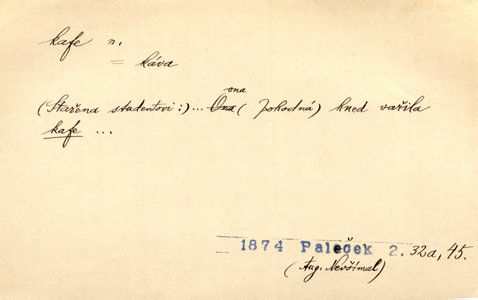 kafe n.
= káva
ona
(Stařena studentovi:) ... Ona (pohodná) hned vařila
kafe ...
1874 Paleček 2. 32a, 45.
(Aug. Nevšímal)